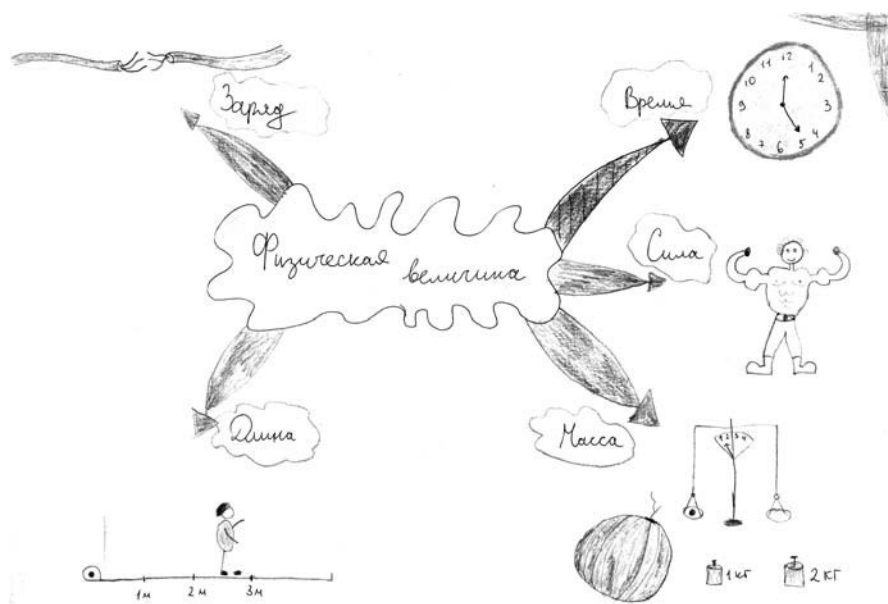 Заряд
Время
12
11
1
10
2
9
3
8
4
7
5
6
Физическая
величина
Сила
Длина
Масса
1 2 3 4
1м 2м 3м
1 кг 2 кг